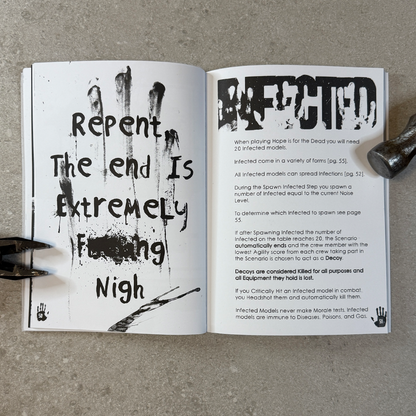 Repent,
The end Is
Extremely
F ng
Nigh
INFECTED
When playing Hope is for the Dead you will need
20 Infected models.
Infected come in a variety of forms (pg. 55).
All Infected models can spread Infections (pg. 52)
During the Spawn Infected Step you spawn a
number of Infected equal to the current Noise
Level.
To determine which Infected to spawn see page
55.
If after Spawning Infected the number of
Infected on the table reaches 20, the Scenario
automatically ends and the crew member with the
lowest Agility score from each crew taking part in
the Scenario is chosen to act as a Decoy.
Decoys are considered Killed for all purposes and
all Equipment they hold is lost.
If you Critically Hit an Infected model in combat,
you Headshot them and automatically kill them.
Infected Models never make Morale tests. Infected
models are immune to Diseases, Poisons, and Gas.